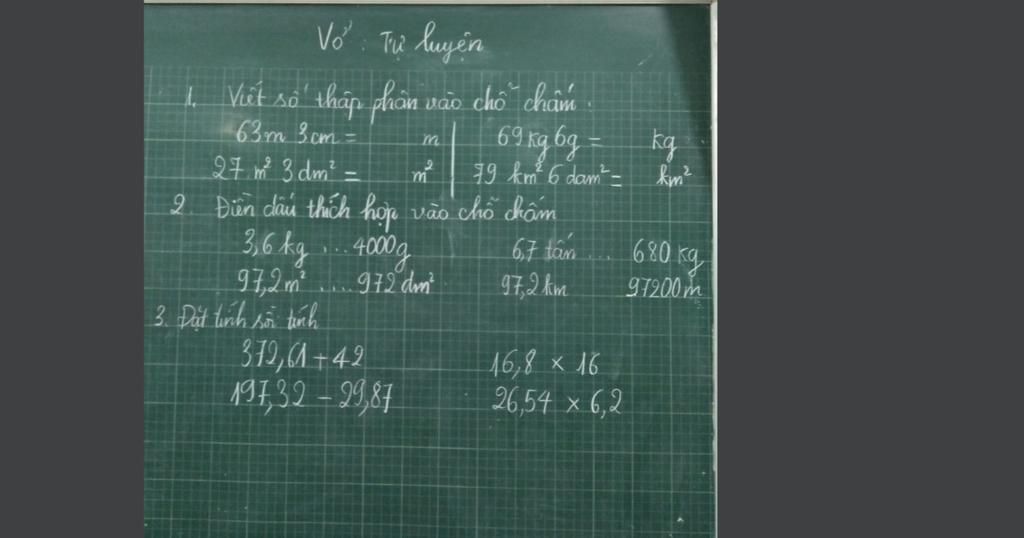 Vở: Tự luyện
1. Viết số thập phân vào chỗ chấm.
63m 3cm = m | 69kg 6g = kg
27 m² 3 dm² = m² | 79 km² 6 dam² = km²
2. Điền dấu thích hợp vào chỗ chấm
3,6 kg ... 4000g 6,7 tấn ... 680 kg
97,2 m² .... 972 dm² 97,2 km 97200 m
3. Đặt tính rồi tính
372,61 + 42 16,8 × 16
197,32 - 29,87 26,54 × 6,2